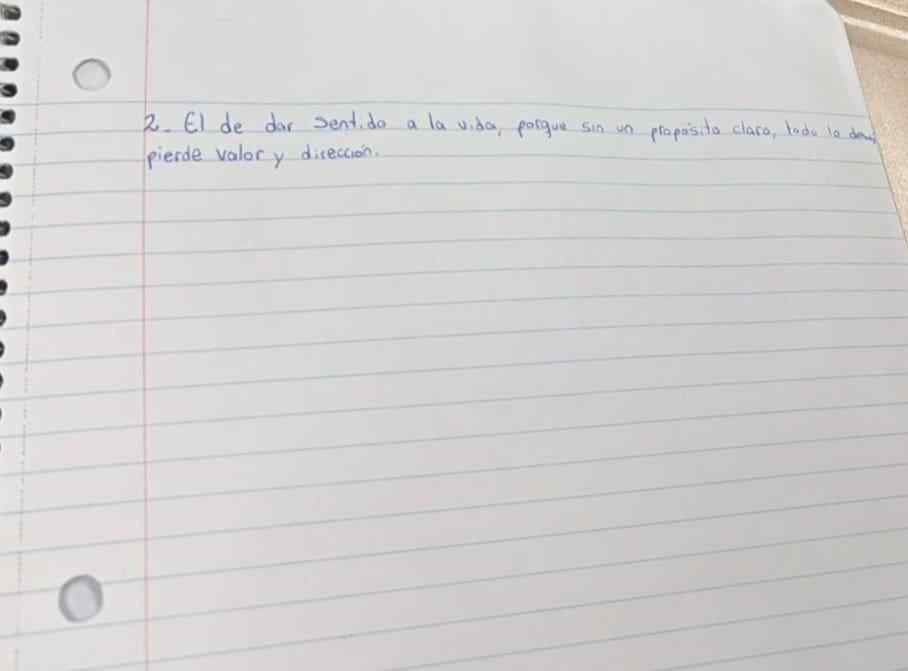 2. El de dar sentido a la vida, porque sin un proposito claro, todo lo demas
pierde valor y dirección.